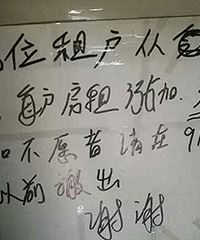 位租户从
每户房租强加
不愿者请在9
以前搬出
谢谢